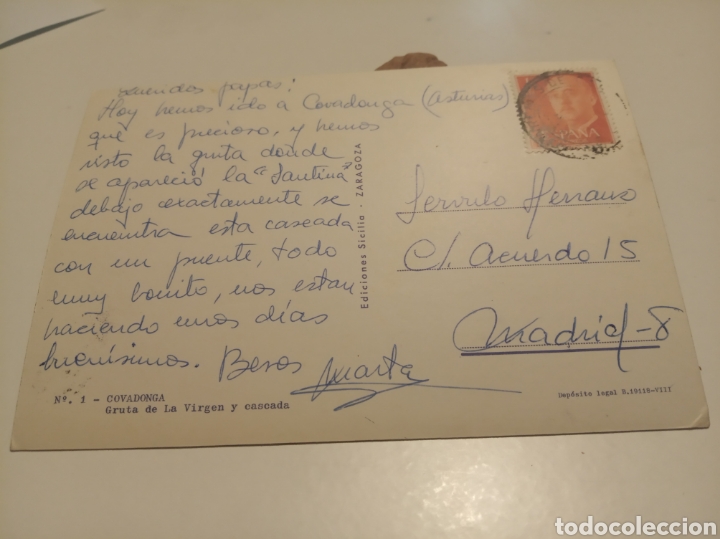 Queridos papas!
Hoy hemos ido a Covadonga (Asturias)
que es precioso, y hemos
visto la gruta donde
se apareció la "Santina"
debajo exactamente se
encuentra esta cascada
con un puente, todo
muy bonito, nos estan
haciendo unos días
buenísimos. Besos
Marta
Nº. 1 - COVADONGA
Gruta de La Virgen y cascada
Ediciones Sicilia - ZARAGOZA
ESPAÑA
Servulo Herranz
C/. Acuerdo 15
Madrid-8
Depósito legal B.19128-VIII
todocoleccion